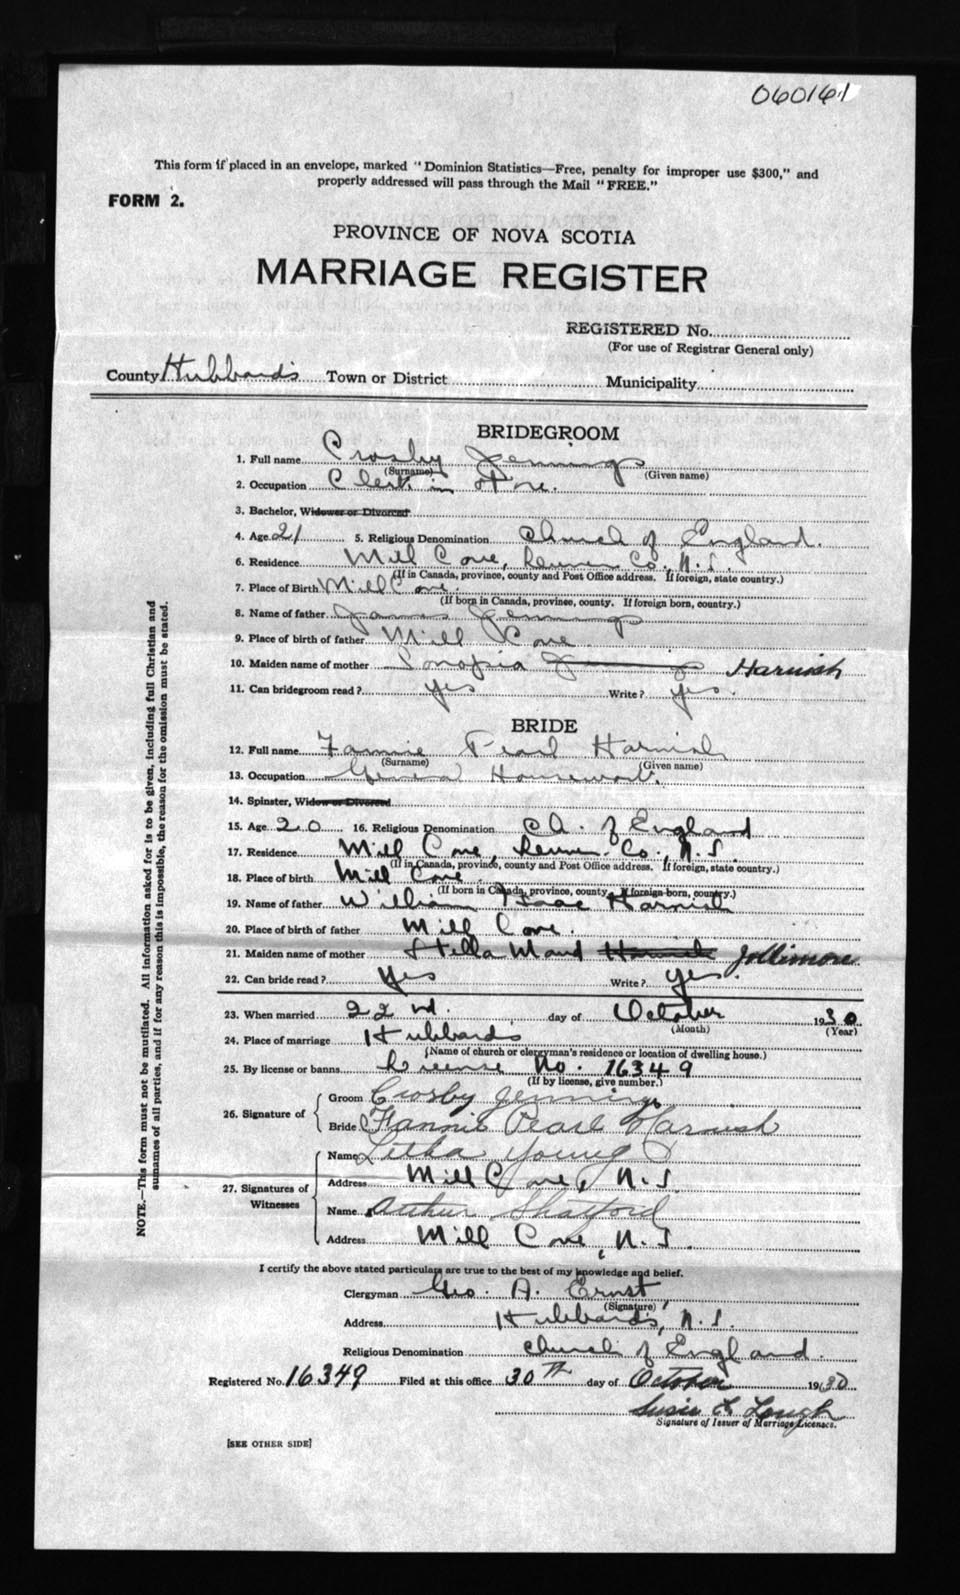 060161
This form if placed in an envelope, marked "Dominion Statistics—Free, penalty for improper use $300," and
properly addressed will pass through the Mail "FREE."
FORM 2.
PROVINCE OF NOVA SCOTIA
MARRIAGE REGISTER
REGISTERED No.
(For use of Registrar General only)
County Hubbards Town or District Municipality
BRIDEGROOM
1. Full name Crosby Jennings
(Surname) (Given name)
2. Occupation Clerk in Store.
3. Bachelor, Widower or Divorced
4. Age 21 5. Religious Denomination Church of England.
6. Residence Mill Cove, Lunen Co., N.S.
(If in Canada, province, county and Post Office address. If foreign, state country.)
7. Place of Birth Mill Cove.
(If born in Canada, province, county. If foreign born, country.)
8. Name of father James Jennings
9. Place of birth of father Mill Cove
10. Maiden name of mother Harnish
11. Can bridegroom read? yes Write? yes.
BRIDE
12. Full name Fannie Pearl Harnish
(Surname) (Given name)
13. Occupation General Housework.
14. Spinster, Widow or Divorced
15. Age 20 16. Religious Denomination Ch. of England
17. Residence Mill Cove, Lunen. Co., N.S.
(If in Canada, province, county and Post Office address. If foreign, state country.)
18. Place of birth Mill Cove.
(If born in Canada, province, county. If foreign born, country.)
19. Name of father William Isaac Harnish
20. Place of birth of father Mill Cove.
21. Maiden name of mother Stella Maud Harnish Jollimore
22. Can bride read? Yes Write? yes.
23. When married 22nd. day of October 1930
(Month) (Year)
24. Place of marriage Hubbards
(Name of church or clergyman's residence or location of dwelling house.)
25. By license or banns. License No. 16349
(If by license, give number.)
26. Signature of Groom Crosby Jennings
Bride Fannie Pearl Harnish
27. Signatures of Witnesses Name Letha Young
Address Mill Cove, N.S.
Name Arthur Shatford
Address Mill Cove, N.S.
I certify the above stated particulars are true to the best of my knowledge and belief.
Clergyman Geo. A. Ernst,
(Signature)
Address Hubbards, N.S.
Religious Denomination Church of England.
Registered No. 16349 Filed at this office 30th day of October 1930
Susie L Lough
Signature of Issuer of Marriage Licenses.
[SEE OTHER SIDE]
NOTE.—This form must not be mutilated. All information asked for is to be given, including full Christian and
surnames of all parties, and if for any reason this is impossible, the reason for the omission must be stated.